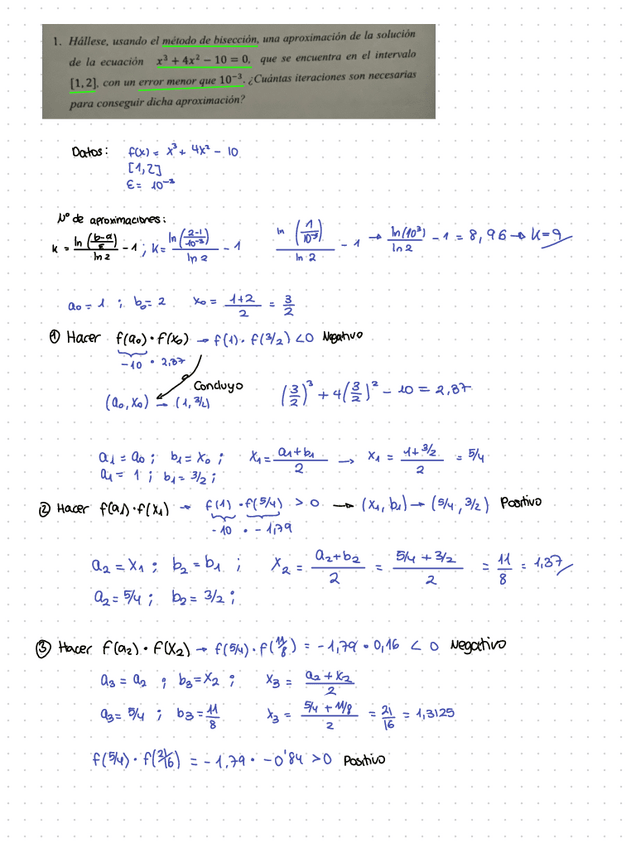 1. Hállese, usando el método de bisección, una aproximación de la solución
de la ecuación x³ + 4x² − 10 = 0, que se encuentra en el intervalo
[1,2], con un error menor que 10⁻³. ¿Cuántas iteraciones son necesarias
para conseguir dicha aproximación?
Datos: f(x) = x³ + 4x² − 10
[1,2]
ε = 10⁻³
Nº de aproximaciones:
k = ln((b-a)/ε)/ln 2 − 1 ; k = ln((2-1)/10⁻³)/ln 2 − 1   ln(1/10⁻³)/ln 2 − 1 → ln(10³)/ln 2 − 1 = 8,96 → k=9
a₀ = 1 ; b₀ = 2   x₀ = (1+2)/2 = 3/2
① Hacer f(a₀)·f(x₀) → f(1)·f(3/2) < 0 Negativo
−10 · 2,37
Concluyo
(a₀, x₀) → (1, 3/2)   (3/2)³ + 4(3/2)² − 10 = 2,37
a₁ = a₀ ; b₁ = x₀ ;   x₁ = (a₁+b₁)/2 → x₁ = (1+3/2)/2 = 5/4
a₁ = 1 ; b₁ = 3/2 ;
② Hacer f(a₁)·f(x₁) → f(1)·f(5/4) > 0 → (x₁, b₁) → (5/4, 3/2) Positivo
−10 · −1,79
a₂ = x₁ ; b₂ = b₁ ;   x₂ = (a₂+b₂)/2 = (5/4 + 3/2)/2 = 11/8 = 1,37
a₂ = 5/4 ; b₂ = 3/2 ;
③ Hacer f(a₂)·f(x₂) → f(5/4)·f(11/8) = −1,79 · 0,16 < 0 Negativo
a₃ = a₂ ; b₃ = x₂ ;   x₃ = (a₂ + x₂)/2
a₃ = 5/4 ; b₃ = 11/8   x₃ = (5/4 + 11/8)/2 = 21/16 = 1,3125
f(5/4)·f(21/16) = −1,79 · −0'84 > 0 Positivo